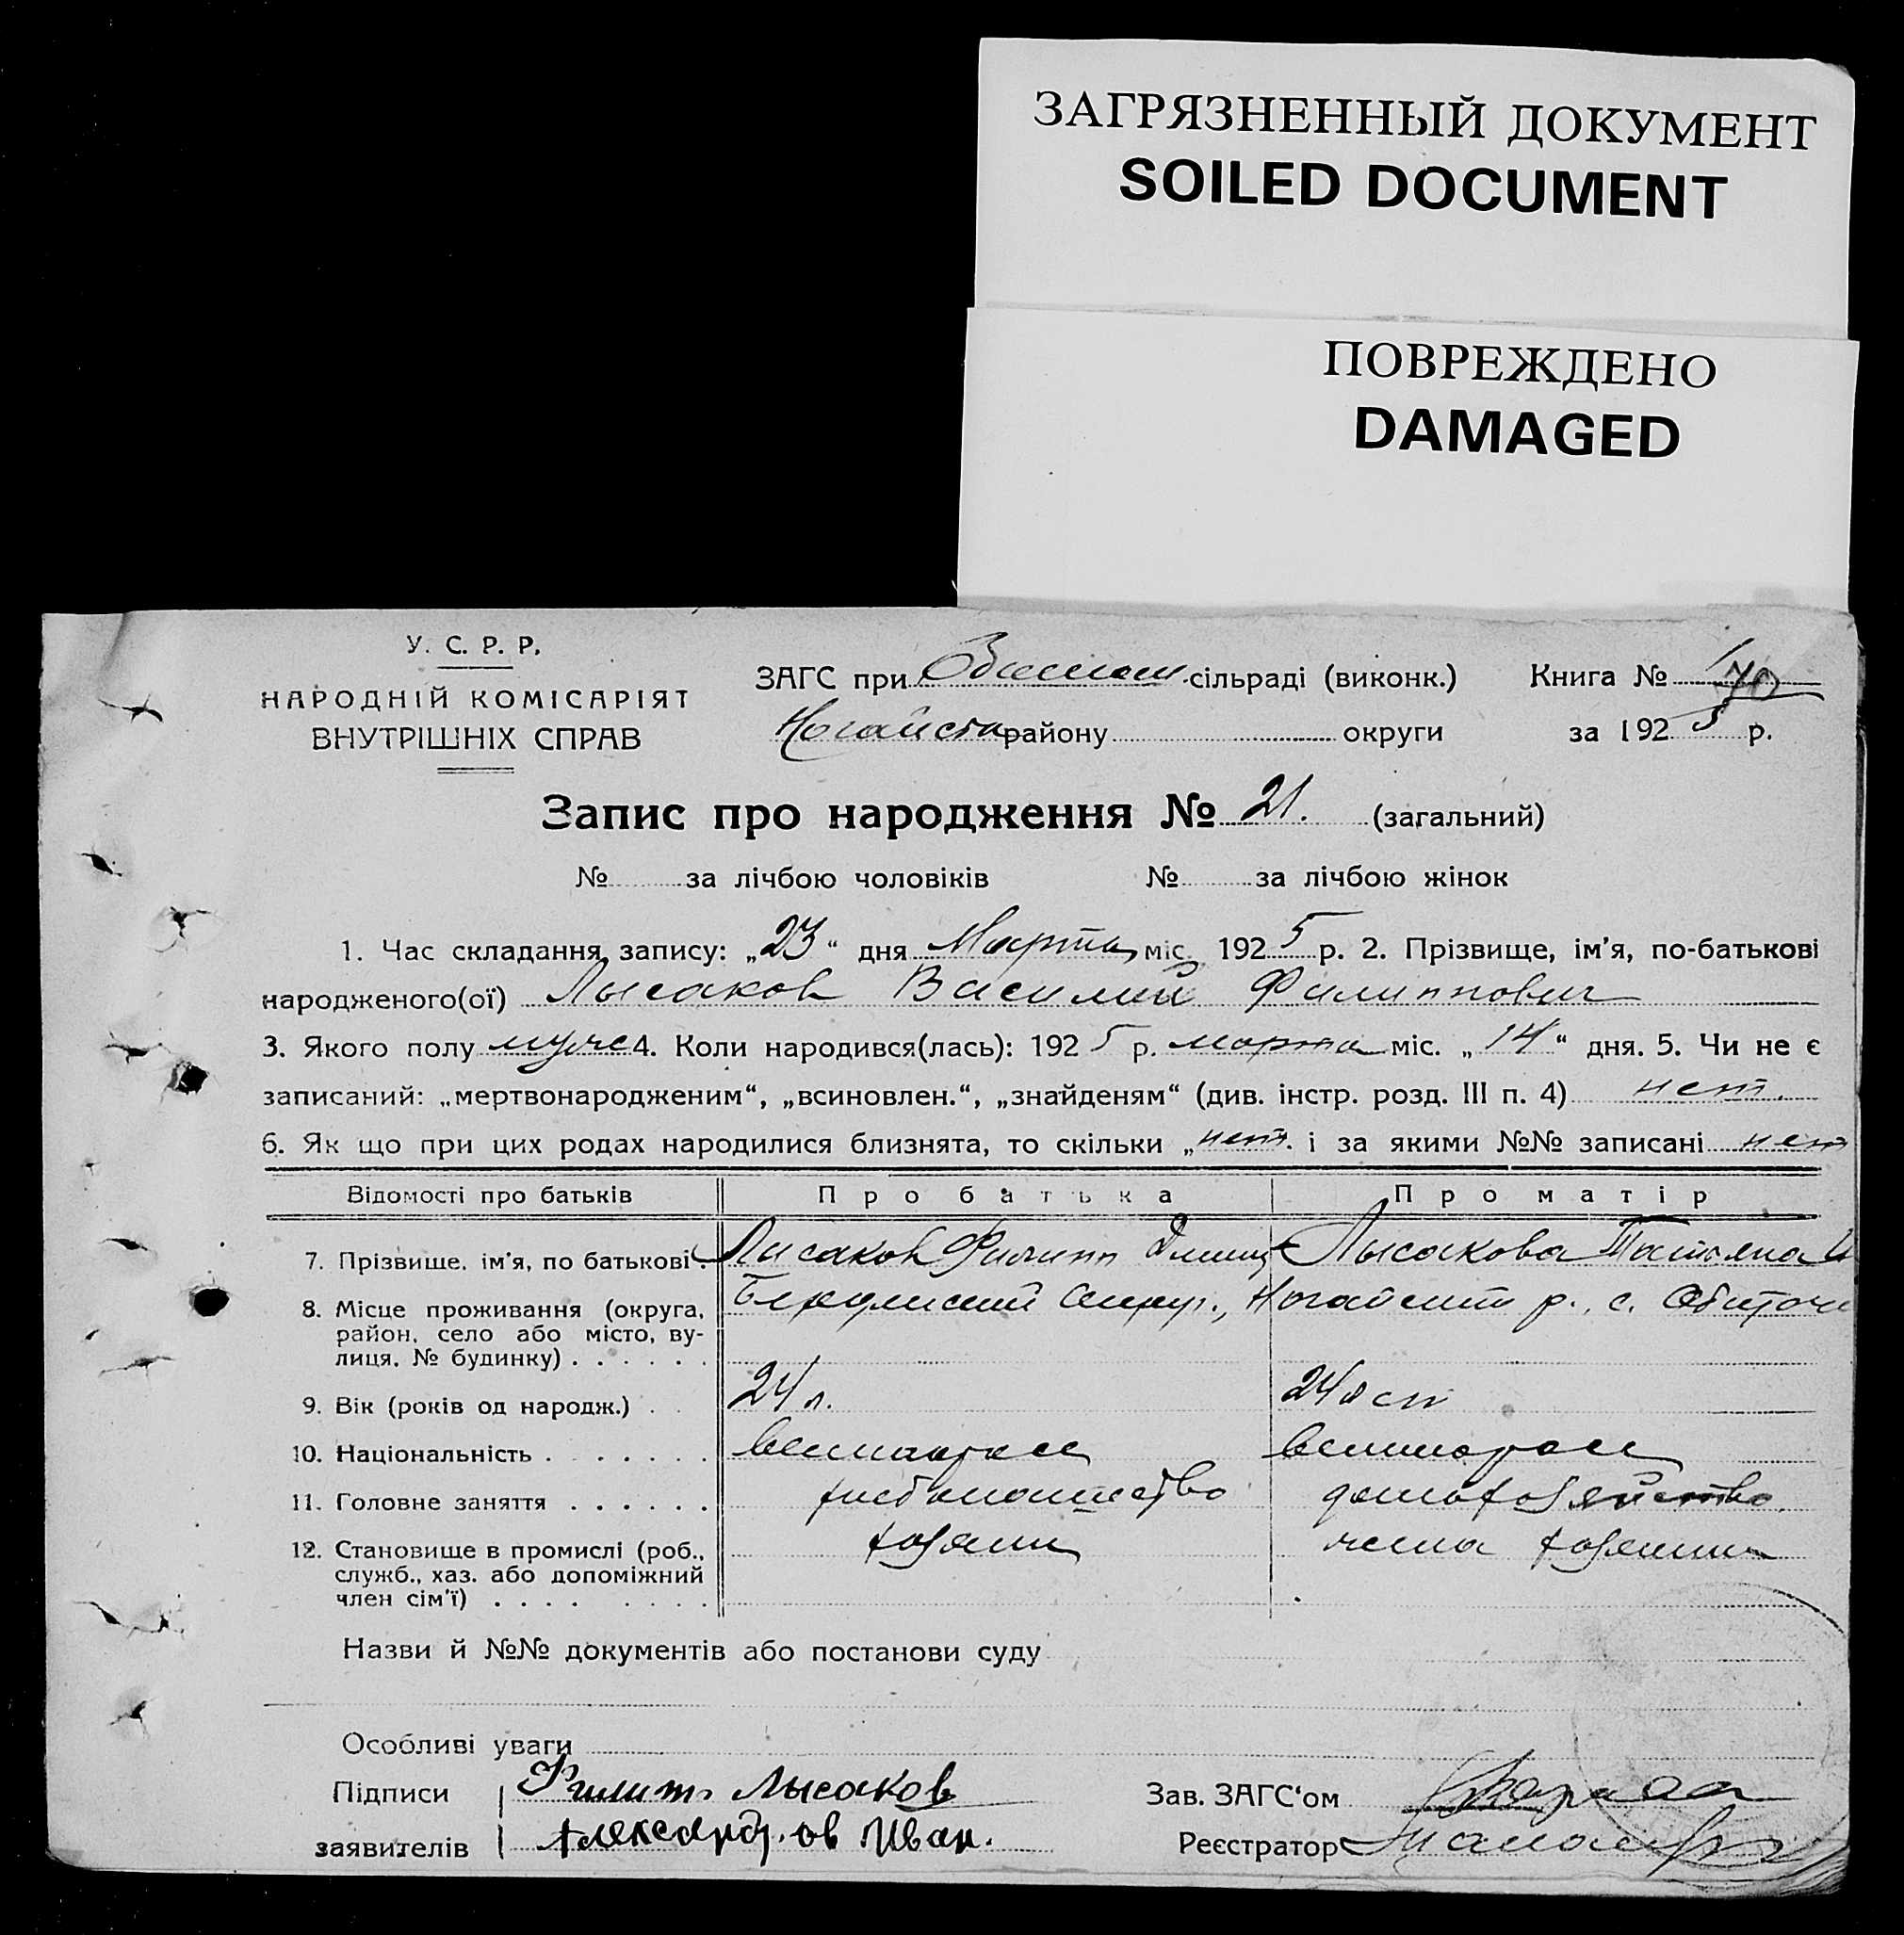 ЗАГРЯЗНЕННЫЙ ДОКУМЕНТ
SOILED DOCUMENT
ПОВРЕЖДЕНО
DAMAGED
У. С. Р. Р.
НАРОДНІЙ КОМІСАРІЯТ
ВНУТРІШНІХ СПРАВ
ЗАГС при сільраді (виконк.) Книга № 1
70
Ногайск району округи за 1925 р.
Запис про народження № 21. (загальний)
№ за лічбою чоловіків № за лічбою жінок
1. Час складання запису: „23“ дня Марта міс. 1925 р. 2. Прізвище, ім'я, по-батькові
народженого(ої) Лысаков Василий Филиппович
3. Якого полу муже 4. Коли народився(лась): 1925 р. марта міс. „14“ дня. 5. Чи не є
записаний: „мертвонародженим“, „всиновлен.“, „знайденям“ (див. інстр. розд. III п. 4) нет.
6. Як що при цих родах народилися близнята, то скільки „нет. і за якими №№ записані нет
Відомості про батьків Про батька Про матір
7. Прізвище, ім'я, по батькові. Лисаков Филипп Лысакова Татьяна
8. Місце проживання (округа, район, село або місто, ву-
лиця, № будинку) . . . . . . Ногайский р., с. Обиточн
9. Вік (років од народж.) . . 24 л. 24 лет
10. Національність . . . . . . . великоросс великоросс
11. Головне заняття . . . . . . хлебопашество домохозяйство
12. Становище в промислі (роб., хозяин жена хозяина
служб., хаз. або допоміжний
член сім'ї) . . . . . . . .
Назви й №№ документів або постанови суду
Особливі уваги
Підписи Филип Лысаков Зав. ЗАГС'ом
заявителів Александров Иван. Реєстратор